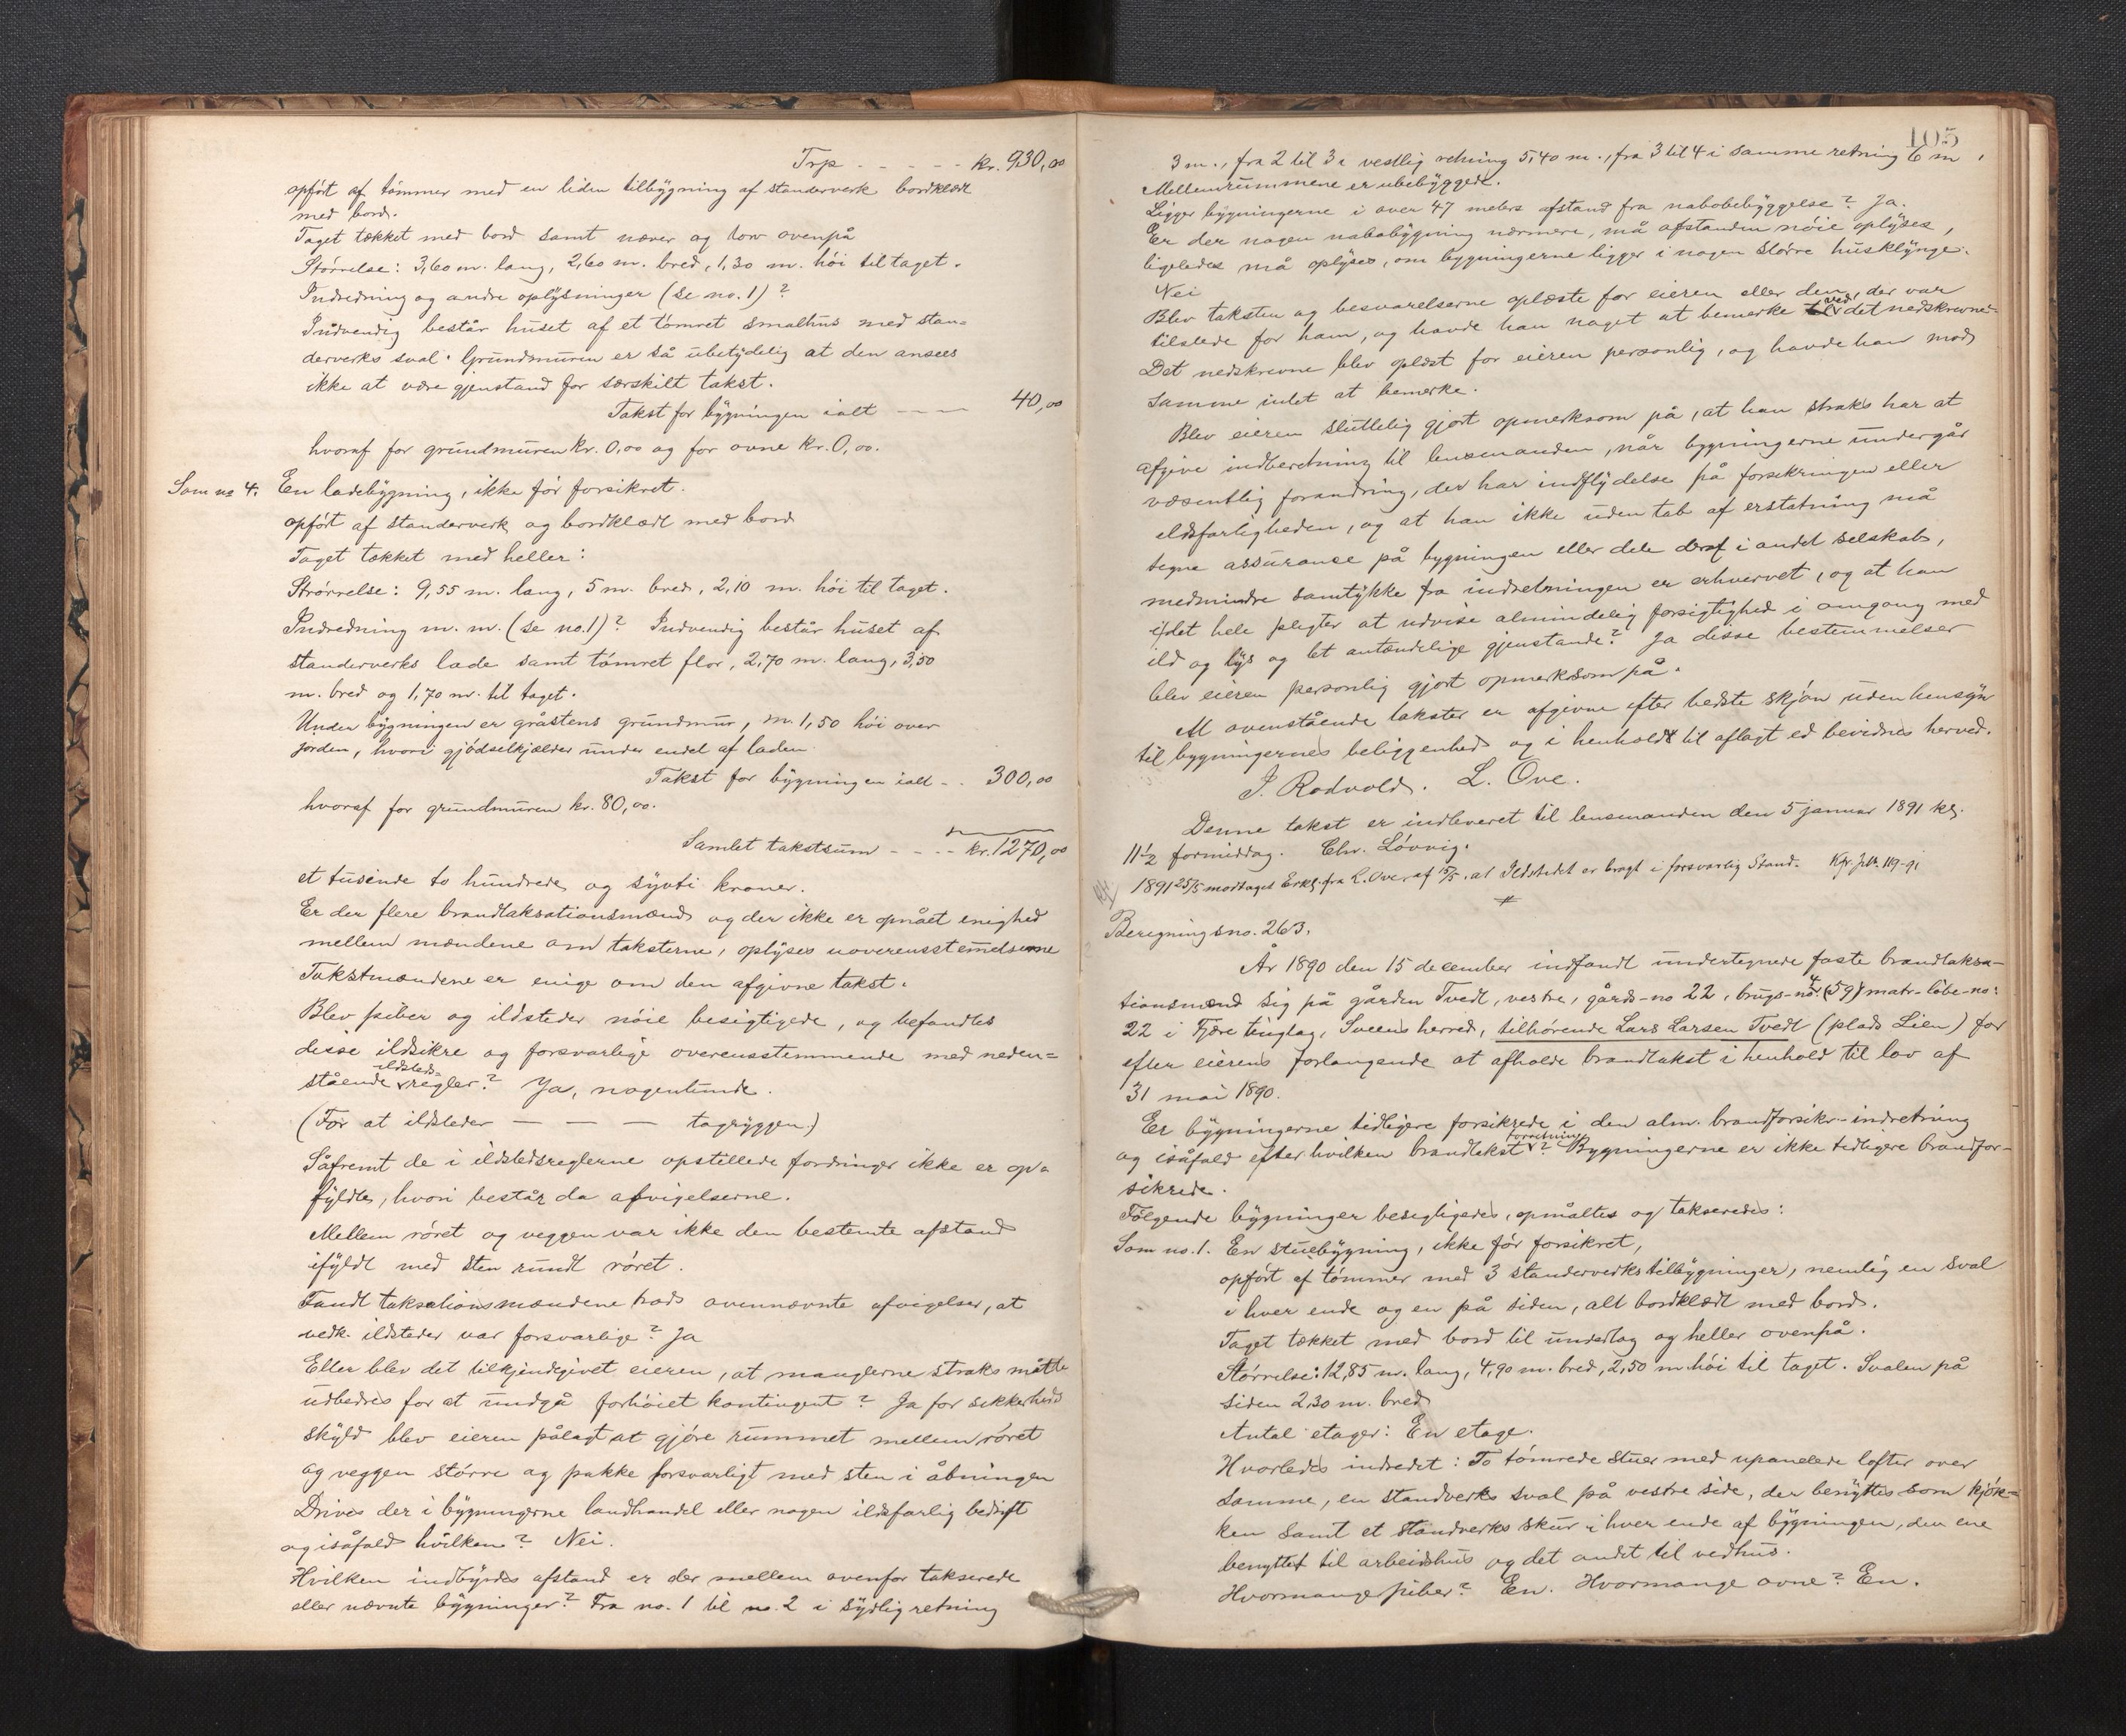 Trp - - - - - kr. 930,00
opført af tømmer med en liden tilbygning af standerverk bordklædt
med bord.
Taget tækket med bord samt næver og torv ovenpå
Størrelse: 3,60 m. lang, 2,60 m. bred, 1,30 m. høi til taget.
Indredning og andre oplysninger (se no. 1)?
Indvendig består huset af et tømret smalhus med stan=
derverks sval. Grundmuren er så ubetydelig at den ansees
ikke at være gjenstand for særskilt takst.
Takst for bygningen ialt - - - 40,00
hvoraf for grundmuren kr. 0,00 og for ovne kr. 0,00.
Som no 4. En ladebygning, ikke før forsikret.
opført af standerverk og bordklædt med bord
Taget tækket med heller:
Størrelse: 9,55 m. lang, 5 m. bred, 2,10 m. høi til taget.
Indredning m. m. (se no. 1)? Indvendig består huset af
standerverks lade samt tømret flor, 2,70 m. lang, 3,50
m. bred og 1,70 m. til taget.
Under bygningen er gråstens grundmur, m. 1,50 høi over
jorden, hvori gjødselkjælder under endel af laden.
Takst for bygningen ialt - . 300,00
hvoraf for grundmuren kr. 80,00.
Samlet takstsum - - - - kr. 1270,00
et tusinde to hundrede og sytti kroner.
Er der flere brandtaksationsmænd og der ikke er opnået enighed
mellem mændene om taksterne, oplyses uoverensstemmelserne
Takstmændene er enige om den afgivne takst.
Blev piber og ildsteder nøie besigtigede, og befandtes
disse ildsikre og forsvarlige overensstemmende med neden=
stående ildsteds= regler? Ja, nogenlunde.
(For at ildsteder — — — tagryggen.)
Såfremt de i ildstedsreglerne opstillede fordringer ikke er op=
fyldte, hvori består da afvigelserne.
Mellem røret og veggen var ikke den bestemte afstand
ifyldt med sten rundt røret.
Fandt taksationsmændene trods ovennævnte afvigelser, at
vedk. ildsteder var forsvarlige? Ja
Eller blev det tilkjendegivet eieren, at manglerne straks måtte
udbedres for at undgå forhøiet kontingent? Ja for sikkerheds
skyld blev eieren pålagt at gjøre rummet mellem røret
og veggen større og pakke forsvarligt med sten i åbningen
Drives der i bygningerne landhandel eller nogen ildsfarlig bedrift
og isåfald hvilken? Nei.
Hvilken indbyrdes afstand er der mellem ovenfor takserede
eller nævnte bygninger? Fra no. 1 til no. 2 i sydlig retning
105
3 m., fra 2 til 3 i vestlig retning 5,40 m., fra 3 til 4 i samme retning 6 m.
Mellemrummene er ubebyggede.
Ligger bygningerne i over 47 meters afstand fra nabobebyggelse? Ja.
Er der nogen nabobygning nærmere, må afstanden nøie oplyses,
ligeledes må oplyses, om bygningerne ligger i nogen større husklynge.
Nei
Blev taksten og besvarelserne oplæste for eieren eller den, der var
tilstede for ham, og havde han noget at bemerke ved det nedskrevne-
Det nedskrevne blev oplæst for eieren personlig, og havde han mod
samme intet at bemerke.
Blev eieren sluttelig gjort opmerksom på, at han straks har at
afgive indberetning til lensmanden, når bygningerne undergår
væsentlig forandring, der har indflydelse på forsikringen eller
ildsfarligheden, og at han ikke uden tab af erstatning må
tegne assurance på bygningen eller dele deraf i andet selskab,
medmindre samtykke fra indretningen er erhvervet, og at han
i det hele pligter at udvise almindelig forsigtighed i omgang med
ild og lys og let antændelige gjenstande? Ja disse bestemmelser
blev eieren personlig gjort opmerksom på.
At ovenstående takster er afgivne efter bedste skjøn uden hensyn
til bygningernes beliggenhed og i henhold til aflagt ed bevidnes herved.
J. Rødvold. L. Ove.
Denne takst er indleveret til lensmanden den 5 januar 1891 kl.
11½ formiddag. Chr. Løvvig.
1891 25/5 modtaget Erkl. fra L. Ove, af 15/5, at Ildstedet er bragt i forsvarlig Stand. Kfr. jnr. 119-91
Beregningsno. 263.
År 1890 den 15 december indfandt undertegnede faste brandtaksa-
tionsmænd sig på gården Tvedt, vestre, gårds-no 22, brugs-no. 4 (59) matr-løbe-no:
22 i Fjære tinglag, Sveens herred, tilhørende Lars Larsen Tvedt (plads Lien) for
efter eierens forlangende at afholde brandtakst i henhold til lov af
31 mai 1890.
Er bygningerne tidligere forsikrede i den alm. brandforsikr.-indretning
og isåfald efter hvilken brandtakst forretning? Bygningerne er ikke tidligere brandfor-
sikrede.
Følgende bygninger besigtigedes, opmåltes og takseredes:
Som no. 1. En stuebygning, ikke før forsikret,
opført af tømmer med 3 standerverks tilbygninger, nemlig en sval
i hver ende og en på siden, alt bordklædt med bord.
Taget tækket med bord til underlag og heller ovenpå.
Størrelse: 12,85 m. lang, 4,90 m. bred, 2,50 m høi til taget. Svalen på
siden 2,30 m. bred
Antal etager: En etage.
Hvorledes indredet: To tømrede stuer med upanelede lofter over
samme, en standverks sval på vestre side, der benyttes som kjøk=
ken samt et standverks skur i hver ende af bygningen, den ene
benyttet til arbeidshus og det andet til vedhus.
Hvormange piber? En. Hvormange ovne? En.